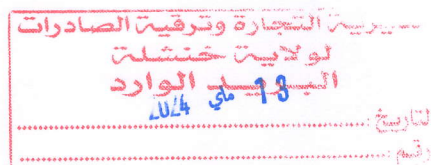 مديرية التجارة وترقية الصادرات
لولاية خنشلة
البريد الوارد
13 ماي 2024
التاريخ :
رقم :